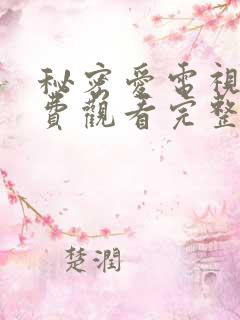 秘密愛電視
費觀看完整
楚潤